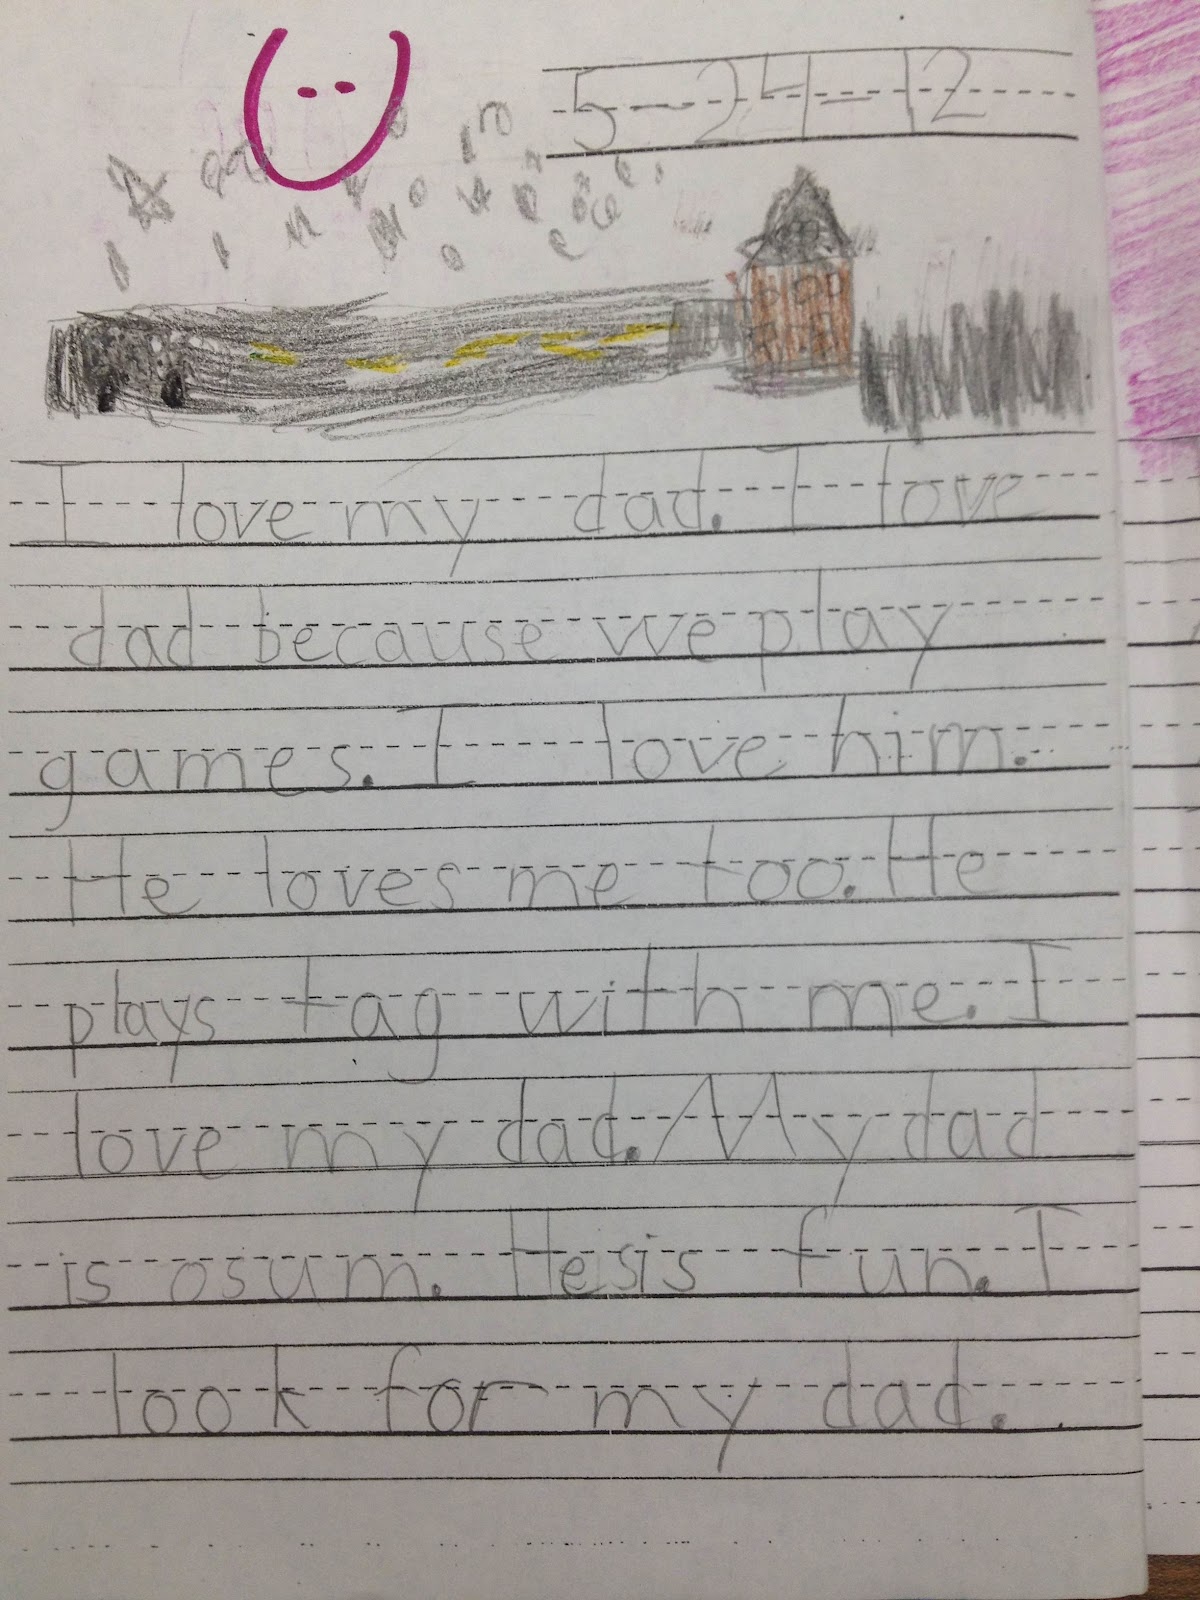 5-24-12
I love my dad. I love
dad because we play
games. I love him.
He loves me too. He
plays tag with me. I
love my dad. My dad
is osum. Hesis fun. I
look for my dad.